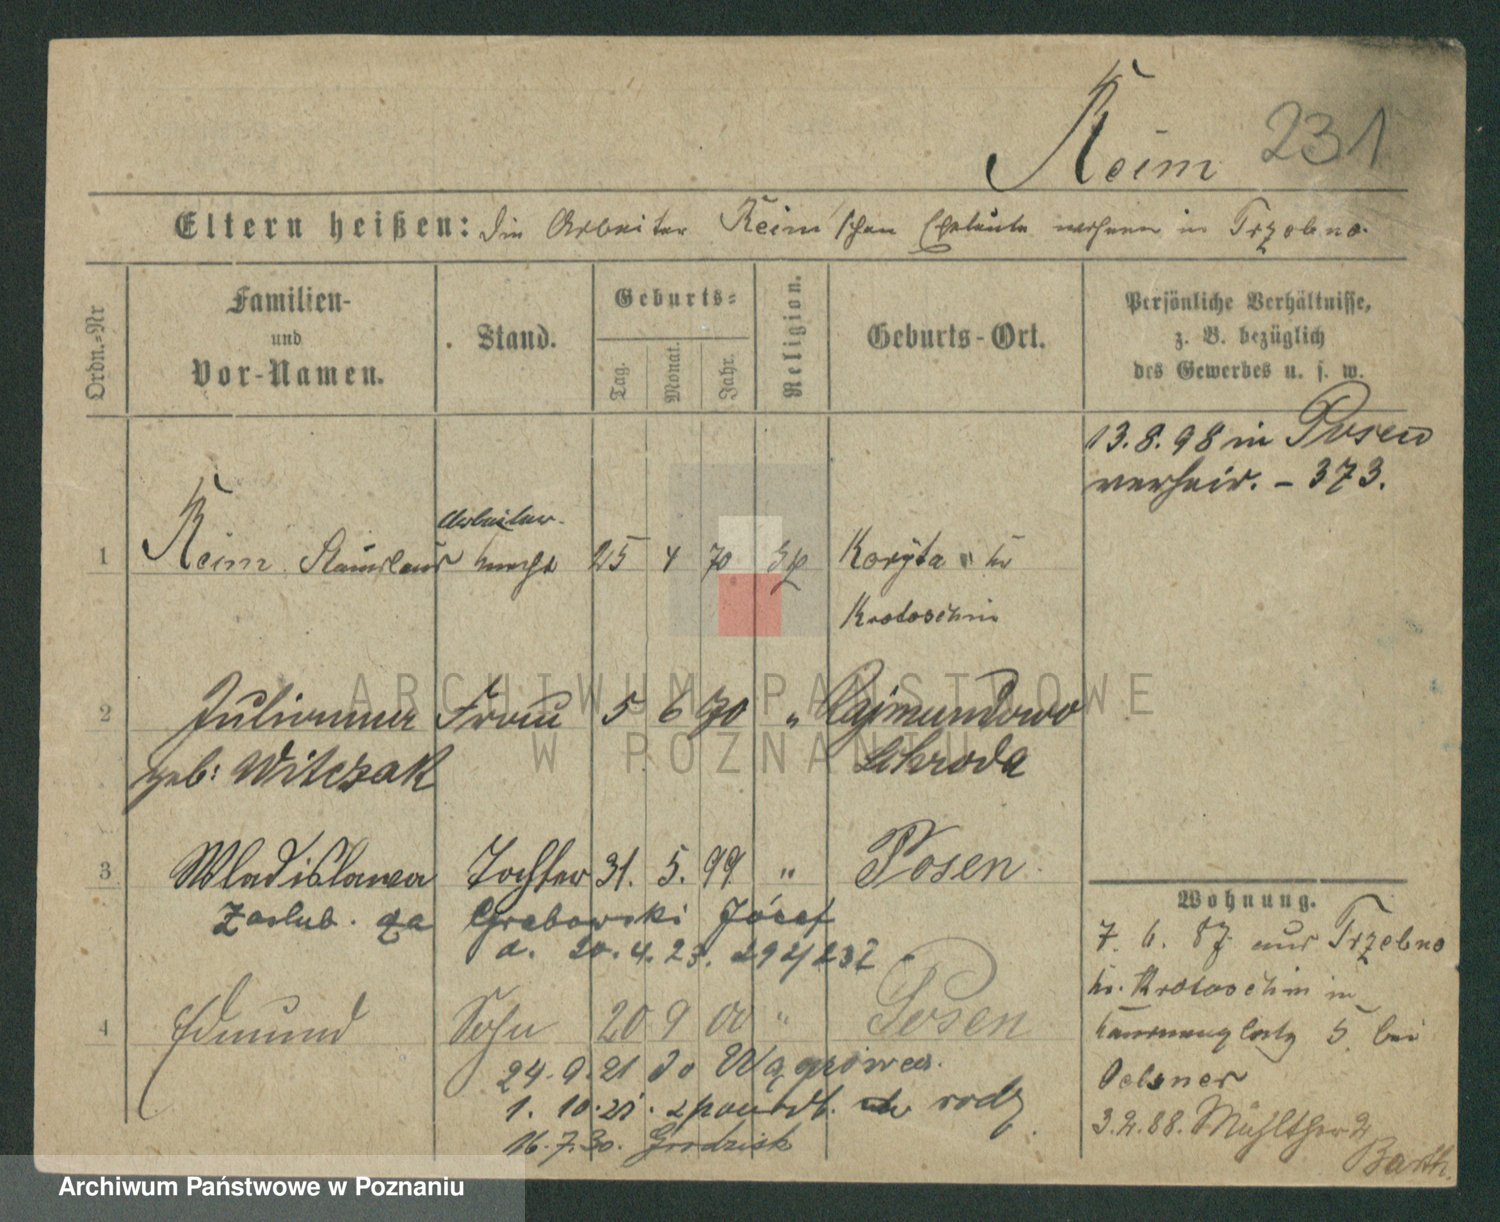 Keim 231
Eltern heißen: die Arbeiter Keim'schen Eheleute wohnen in Trzebno.
Ordn.-Nr
Familien-
und
Vor-Namen.
Stand.
Geburts-
Tag.
Monat.
Jahr.
Religion.
Geburts-Ort.
Persönliche Verhältnisse,
z. B. bezüglich
des Gewerbes u. s. w.
13.8.98 in Posen
verheir. - 373.
Arbeiter
1 Keim Stanislaus Knecht 25 4 70 Koryta Kr
Krotoschin
2 Julianna Frau 5 6 70 " Rajmundowo
geb: Witczak Schroda
3 Wladislawa Tochter 31. 5. 99 " Posen
zaślub. za Grabowski Józef
d. 20. 4. 23.
4 Edmund Sohn 20 9 00 " Posen
24.9.21 do Wągrówca.
1. 10. 21. z powrót. rodz
16.7.30. Grodzisk
Wohnung.
7. 6. 87 aus Trzebno
Kr. Krotoschin in
5 bei
Oelsner
3.2.88. Mühlthor 2
Barth.
ARCHIWUM PAŃSTWOWE
W POZNANIU
Archiwum Państwowe w Poznaniu